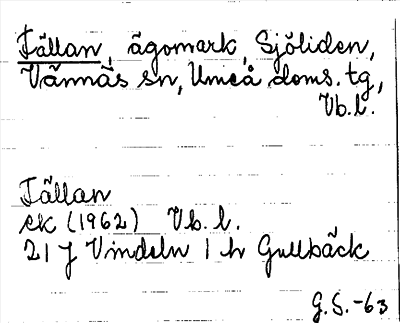 Fällan, ägomark, Sjöliden,
Vännäs sn, Umeå doms. tg,
Vb. l.
Fällan
ek (1962) Vb. l.
21 J Vindeln 1 h Gullbäck
G.S. -63